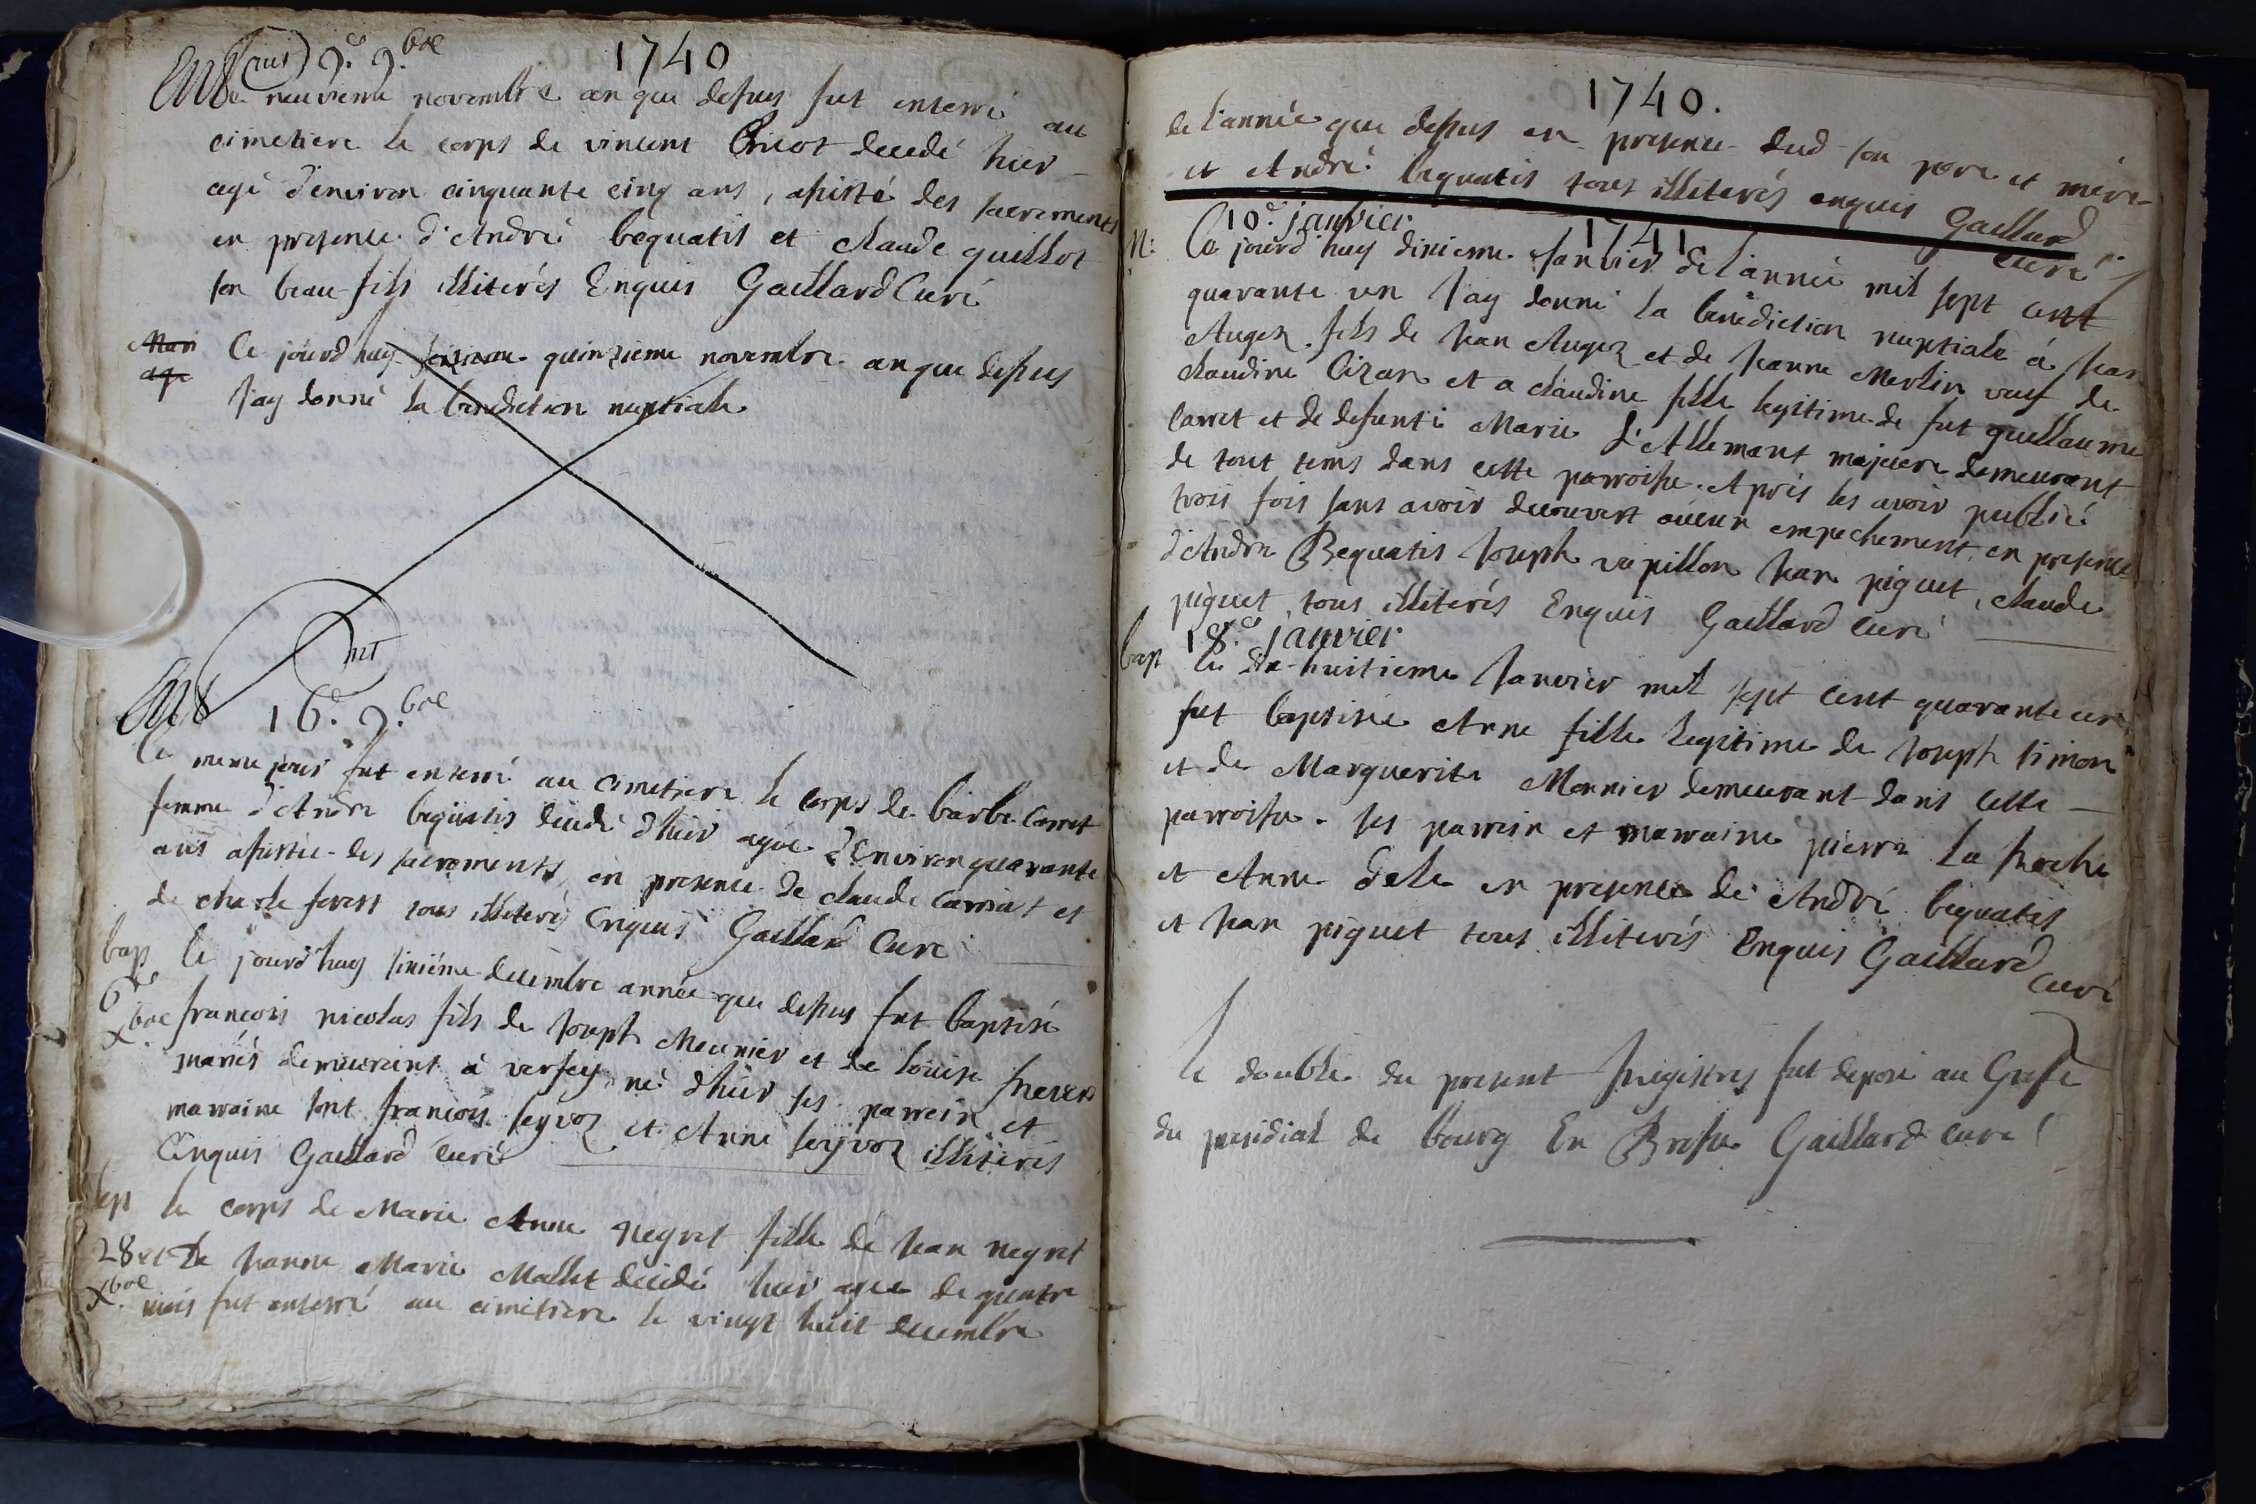 1740
9.e 9.bre
Le neuvieme novembre an que dessus fut enterré au
cimetiere le corps de vincent Pricot decedé hier
agé d'environ cinquante cinq ans, assisté des sacrements
en presence d'André bequatis et claude guillot
son beau-fils illiterés Enquis Gaillard Curé
Mari
age
Ce jourd'huy quinzieme novembre an que dessus
J'ay donné la benediction nuptiale
16.e 9.bre
Ce meme jour fut enterré au cimetiere le corps de barbe Carret
femme d'André bequatis decedé d'hier agée d'Environ quarante
ans assistée des sacrements, en presence de claude Carriat et
de charle forest tous illiterés Enquis Gaillard Curé
bap
6.e
Xbre
Ce jourd'huy sixiéme decembre année que dessus fut baptisé
francois nicolas fils de Joseph Meunier et de Louise
mariés demeurant à verjey né d'hier ses parrein et
marraine sont francois seyvoz et Anne seyvoz illiterés
Enquis Gaillard Curé
sep
28
Xbre
le corps de Marie Anne negret fille de Jean negret
et De Jeanne Marie Mallet decidé hier agée de quatre
mois fut enterré au cimetiere le vingt huit decembre
1740.
de l'année que dessus en presence dud son pere et mère
et André bequatis tous illiterés enquis Gaillard
curé
10.e janvier 1741
M.
Ce jourd'huy dixieme Janvier de l'année mil sept cent
quarante un J'ay donné la benediction nuptiale à Jean
Auger fils de Jean Auger et de Jeanne Merlin veuf de
claudine Cizan et a claudine fille legitime de fut guillaume
Carret et de defunte Marie L'Allemant majeure demeurant
de tout tems dans cette parroisse. Après les avoir publié
trois fois sans avoir decouvert aucun empechement, en presence
d'André Bequatis Joseph vapillon Jean piguet, claude
piguet, tous illiterés Enquis Gaillard curé
18.e janvier
bap
Le dix-huitieme Janvier mil sept cent quarante un
fut baptisée Anne fille legitime de Joseph simon
et de Marguerite Monnier demeurant dans cette
parroisse. ses parrein et marraine pierre La
et Anne dele en presence de André bequatis
et Jean piguet tous illiterés Enquis Gaillard
curé
le double du present Registres fut deposé au Grefe
du presidial de bourg En Bresse Gaillard curé